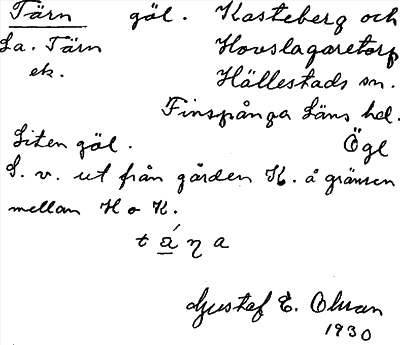 Tärn göl. Kasteberg och
La. Tärn Hovslagaretorp
ek. Hällestads sn.
Finspånga Läns hd.
Liten göl. Ögl
S. v. ut från gården K. å gränsen
mellan H o K.
t á ŋ a
Gustaf E. Ohran
1930